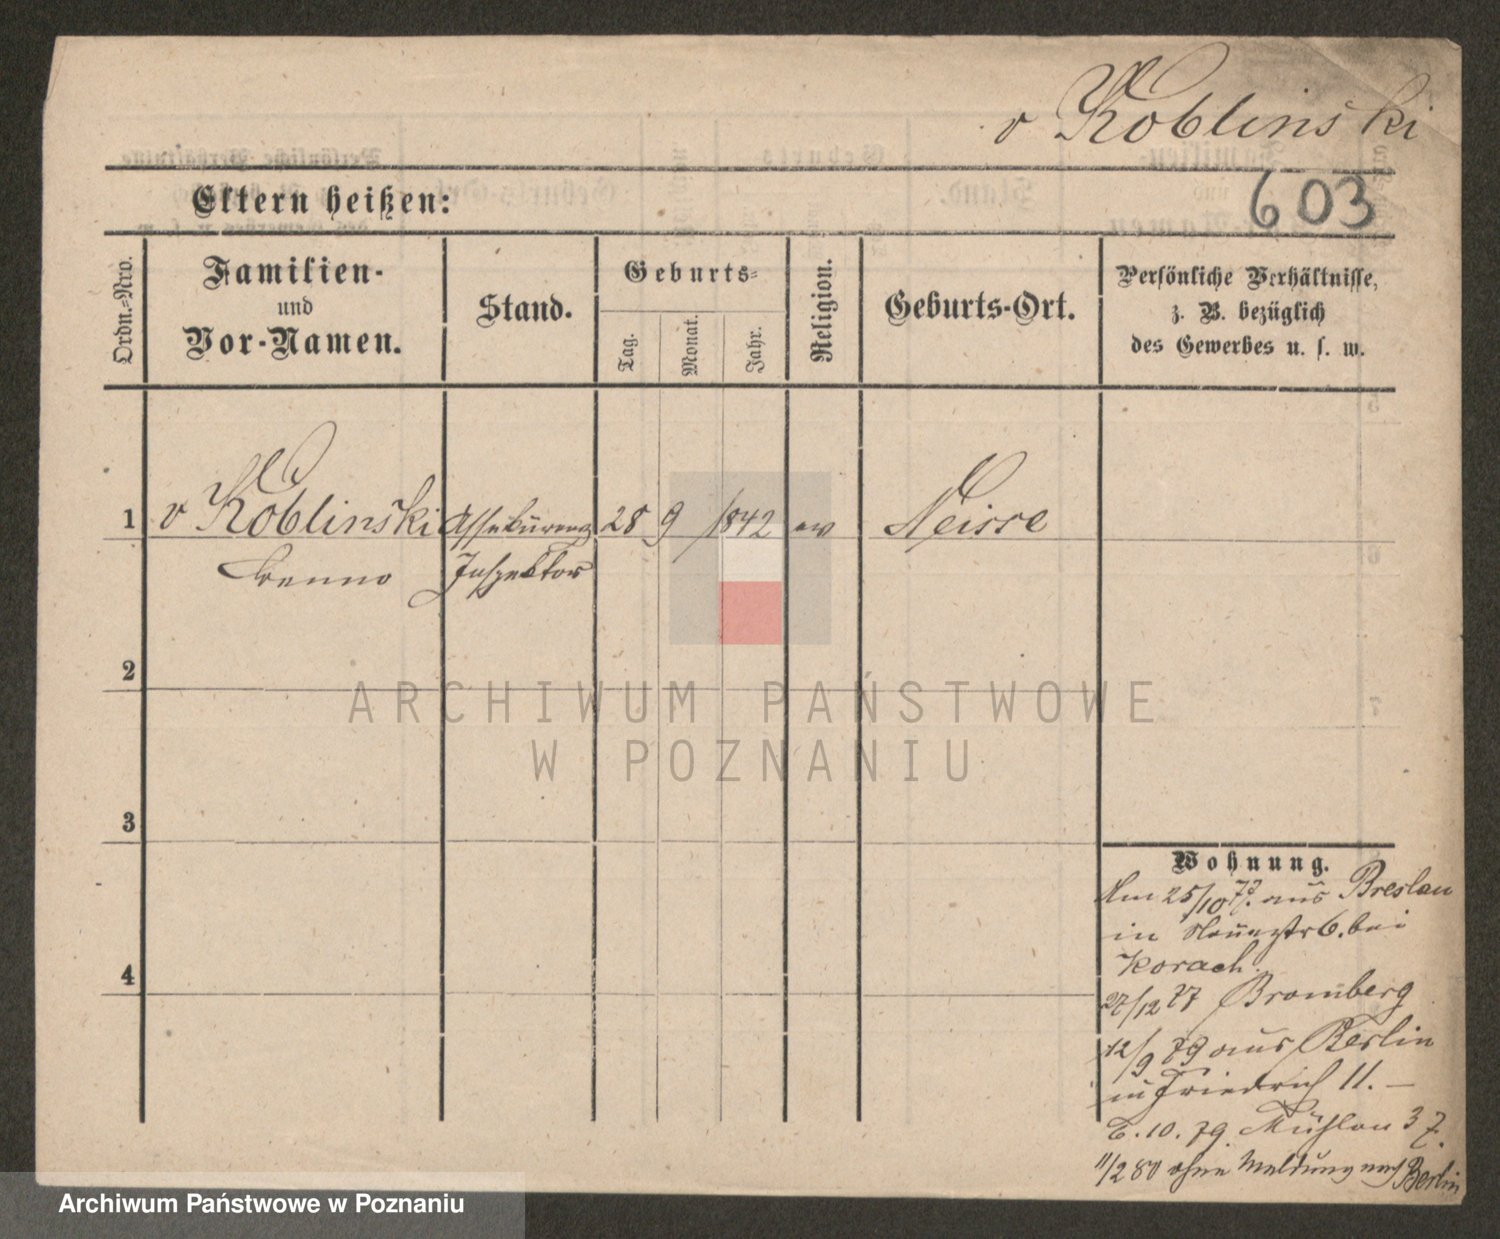 v Koblinski
603
Eltern heißen:
Ordn.-Nro.
Familien-
und
Vor-Namen.
Stand.
Geburts-
Tag.
Monat.
Jahr.
Religion.
Geburts-Ort.
Persönliche Verhältnisse,
z. B. bezüglich
des Gewerbes u. s. w.
1 v Koblinski Assekuranz 28 9 1842 ev Neisse
Benno Inspektor
2
3
4
Wohnung.
Am 25/10 77. aus Breslau
in 6. bei
Korach.
27/12 77 Bromberg
12/9 79 aus Berlin
in Friedrich 11. —
6. 10. 79. Mühlen 37.
11/2 80 ohne Meldung nach Berlin
ARCHIWUM PAŃSTWOWE
W POZNANIU
Archiwum Państwowe w Poznaniu